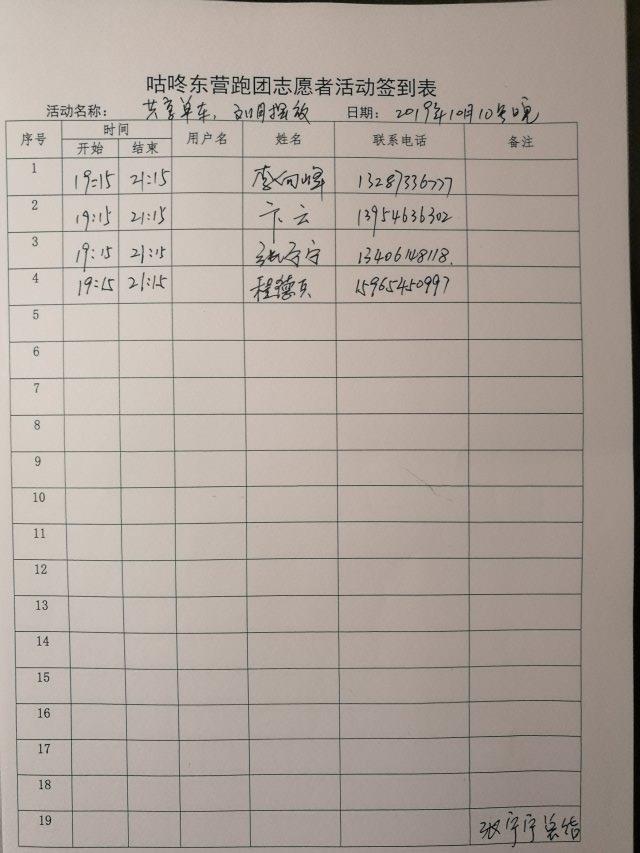 咕咚东营跑团志愿者活动签到表
活动名称： 共享单车, 摆放 日期： 2019年10月10号晚
序号 时间 用户名 姓名 联系电话 备注
开始 结束
1 19:15 21:15 李向峰 13287336777
2 19:15 21:15 卞云 13954636302
3 19:15 21:15 张宁宁 13406148118.
4 19:15 21:15 程德 15965450997
5
6
7
8
9
10
11
12
13
14
15
16
17
18
19 张宁宁总结